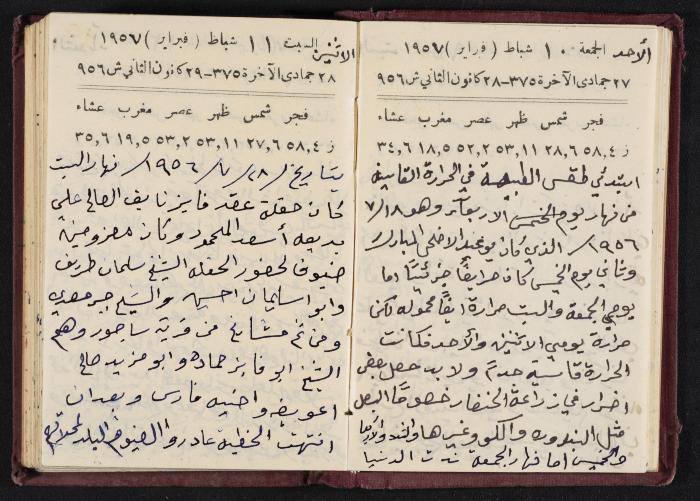 الأحد الجمعة ١٠ شباط (فبراير) ١٩٥٧
٢٧ جمادى الآخرة ٣٧٥ – ٢٨ كانون الثاني ش ٩٥٦
فجر شمس ظهر عصر مغرب عشاء
ز ٥٨,٤ ٢٨,٦ ٥٣,١١ ٥٢,٢ ١٨,٥ ٣٤,٦
ابتدئ طقس الطبيعة في الحرارة القاسية
من نهار يوم الخميس وهو ١٨/٧
١٩٥٦/ الذي كان يوم عيد الاضحى المبارك
وثاني يوم الخميس كان حرايقًا جزئيًا اما
يومي الجمعة والسبت حرارة ايضًا محمولة لكن
حرارة يومي الاثنين والأحد فكانت
الحرارة قاسية جدًا ولا بد حصل بعض
اضرار في زراعة الخضار خصوصًا البعل
مثل البندوره والكوسا وغيرها
والخميس اما نهار الجمعة ندت الدنيا
الاثنين السبت ١١ شباط (فبراير) ١٩٥٧
٢٨ جمادى الآخرة ٣٧٥ – ٢٩ كانون الثاني ش ٩٥٦
فجر شمس ظهر عصر مغرب عشاء
ز ٥٨,٤ ٢٧,٦ ٥٣,١١ ٥٣,٢ ١٩,٥ ٣٥,٦
بتاريخ ٢٨/٧/١٩٥٦/ نهار السبت
كان حفلة عقد فايز نايف الصالح على
بديعه أسعد الملحم وكان معزومين
ضيوف لحضور الحفله الشيخ سلمان طريف
وابو سليمان والشيخ جبر معدي
ومن ثم مشايخ من قرية ساجور وهم
الشيخ ابو فايز حماده وابو مزيد صالح
ابو عريضه واخيه فارس وبعد ان
انتهت الخطبة غادروا الضيوف البلد